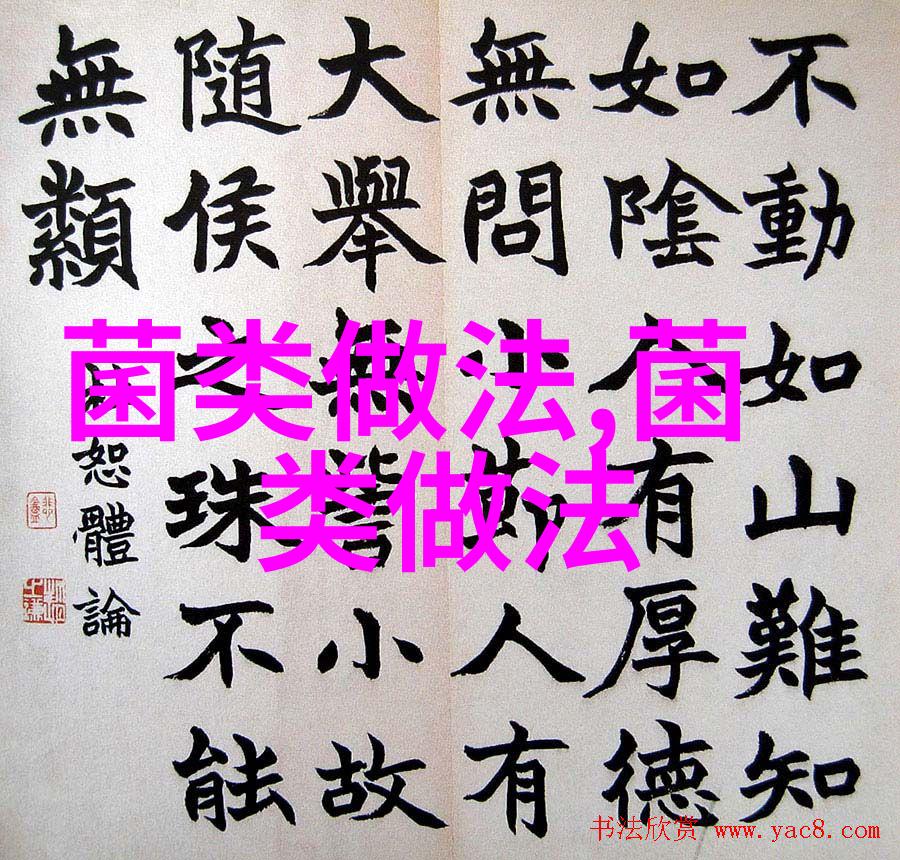 不動如山難知
如陰人有厚德
無問小節人有
大舉無訾小故
隨侯之珠不能
無纇
恕體論
菌类做法,菌
类做法
书法欣赏 www.yac8.com